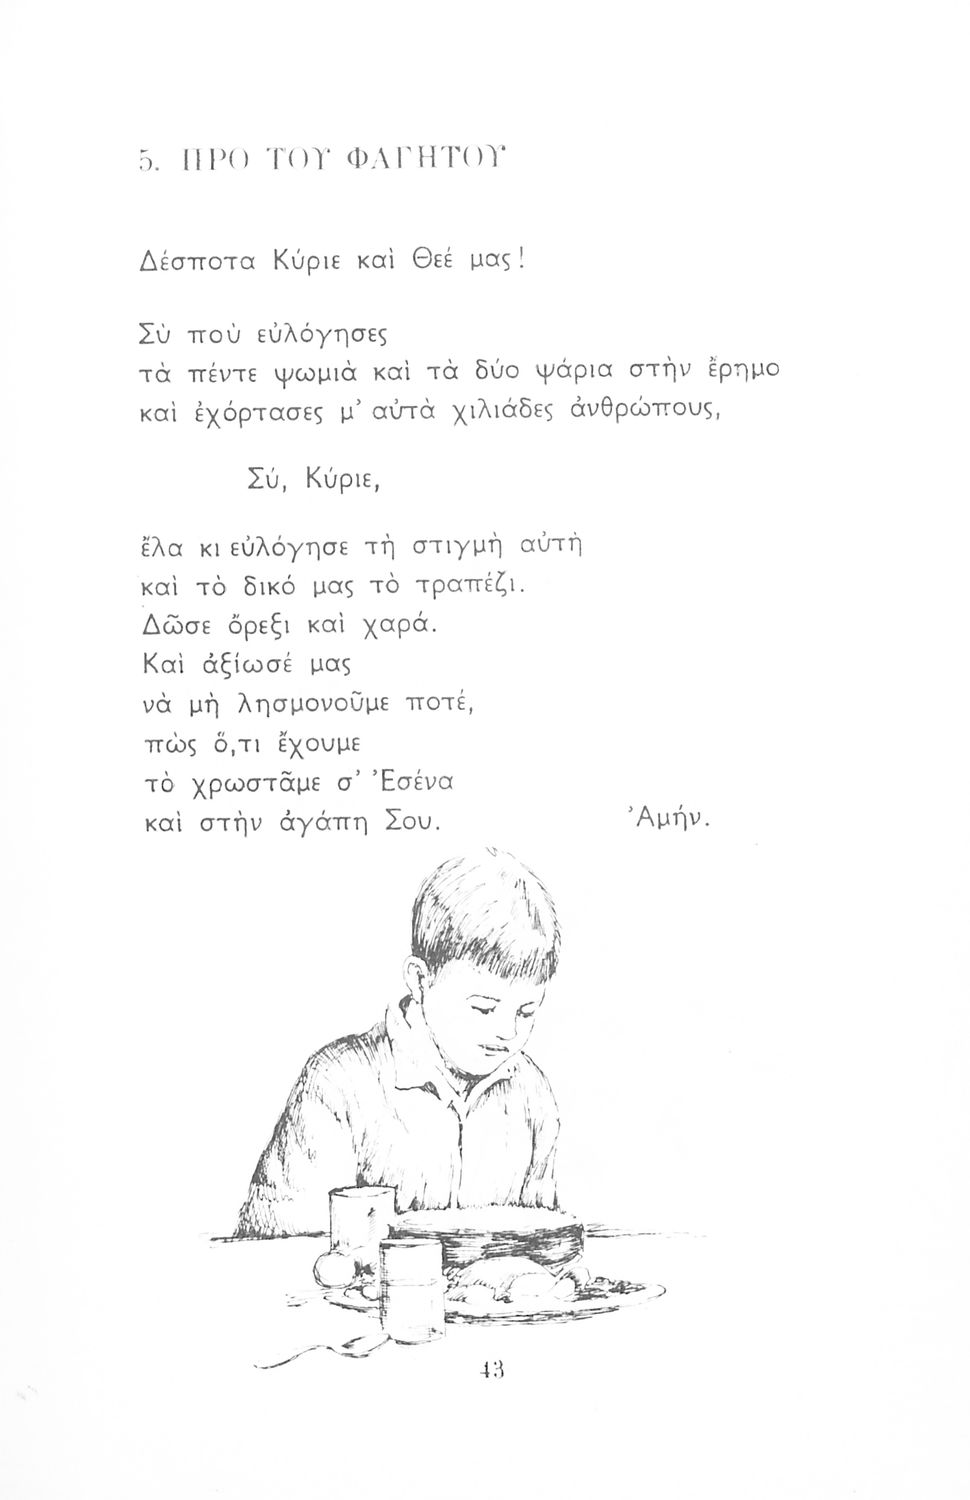 5. ΠΡΟ ΤΟΥ ΦΑΓΗΤΟΥ
Δέσποτα Κύριε καὶ Θεέ μας!
Σὺ ποὺ εὐλόγησες
τὰ πέντε ψωμιὰ καὶ τὰ δύο ψάρια στὴν ἔρημο
καὶ ἐχόρτασες μ᾿ αὐτὰ χιλιάδες ἀνθρώπους,
Σύ, Κύριε,
ἔλα κι εὐλόγησε τὴ στιγμὴ αὐτὴ
καὶ τὸ δικό μας τὸ τραπέζι.
Δῶσε ὄρεξι καὶ χαρά.
Καὶ ἀξίωσέ μας
νὰ μὴ λησμονοῦμε ποτέ,
πὼς ὅ,τι ἔχουμε
τὸ χρωστᾶμε σ᾿ Ἐσένα
καὶ στὴν ἀγάπη Σου. Ἀμήν.
43